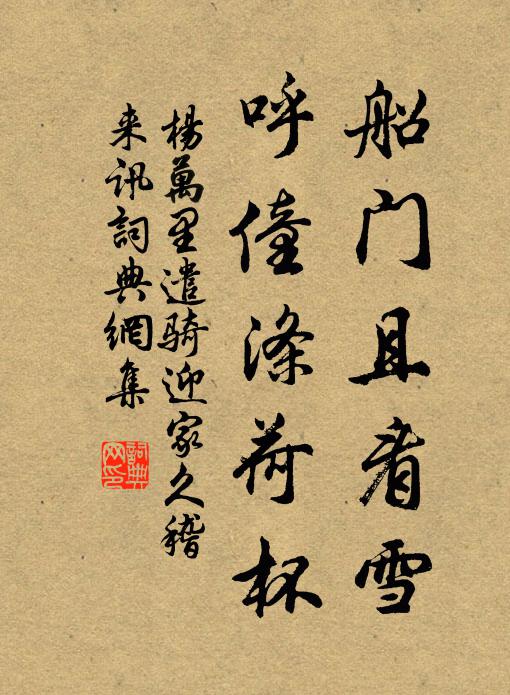 船门且看雪
呼僮涤荷杯
楊萬里遣骑迎家久稽
来讯詞典網集
詞典网印